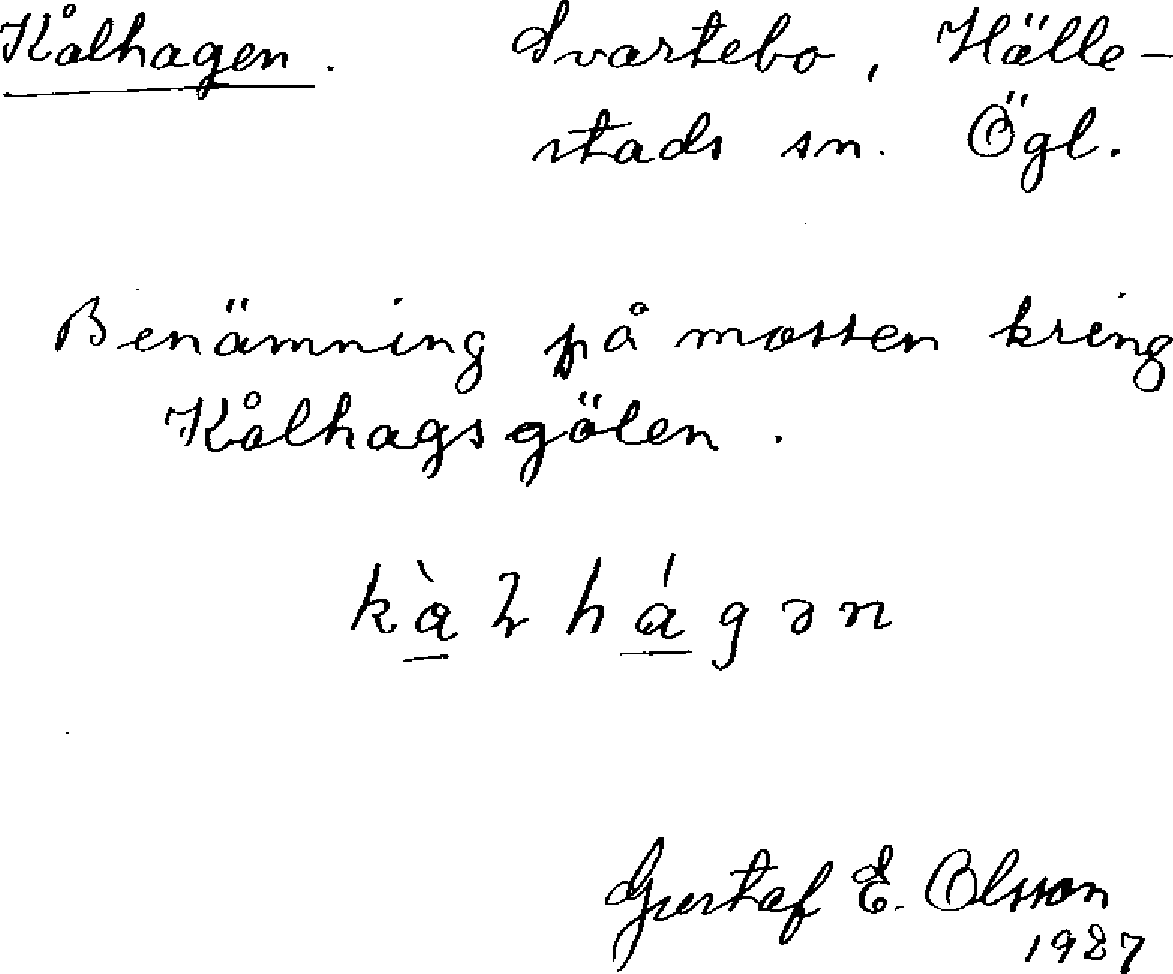 Kålhagen. Svartebo, Hälle-
stads sn. Ögl.
Benämning på mossen kring
Kålhagsgölen.
kàɫhágən
Gustaf E. Olsson
1927